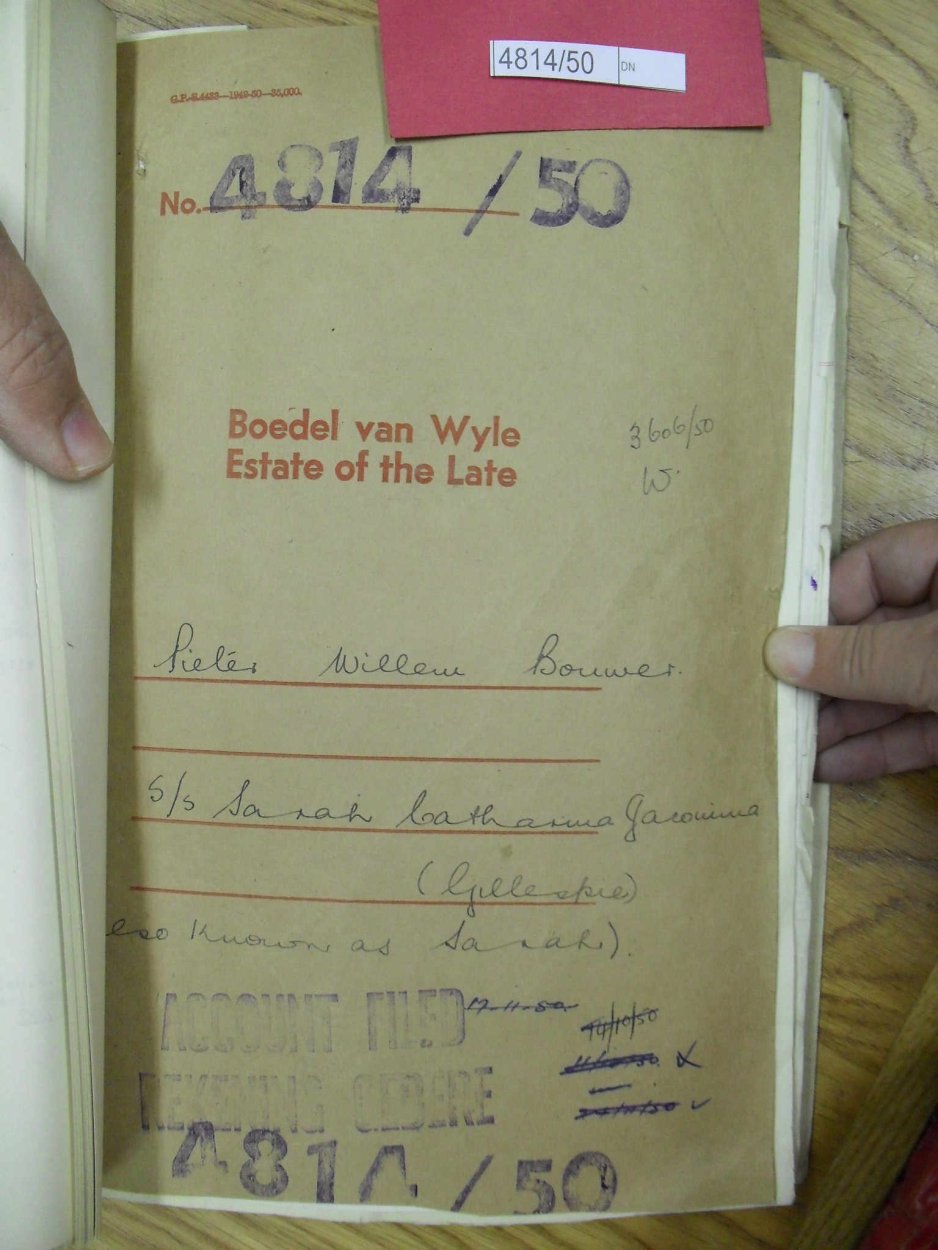 4814/50 DN
G.P.-S.4423—1949-50—35,000.
No. 4814 / 50
Boedel van Wyle
Estate of the Late
3606/50
W.
Pieter Willem Bouwer.
s/s Sarah Catharina Jacomina
(Gillespie)
also known as Sarah).
ACCOUNT FILED 17-11-50
14/10/50
REKENING GEDERE
4814 / 50